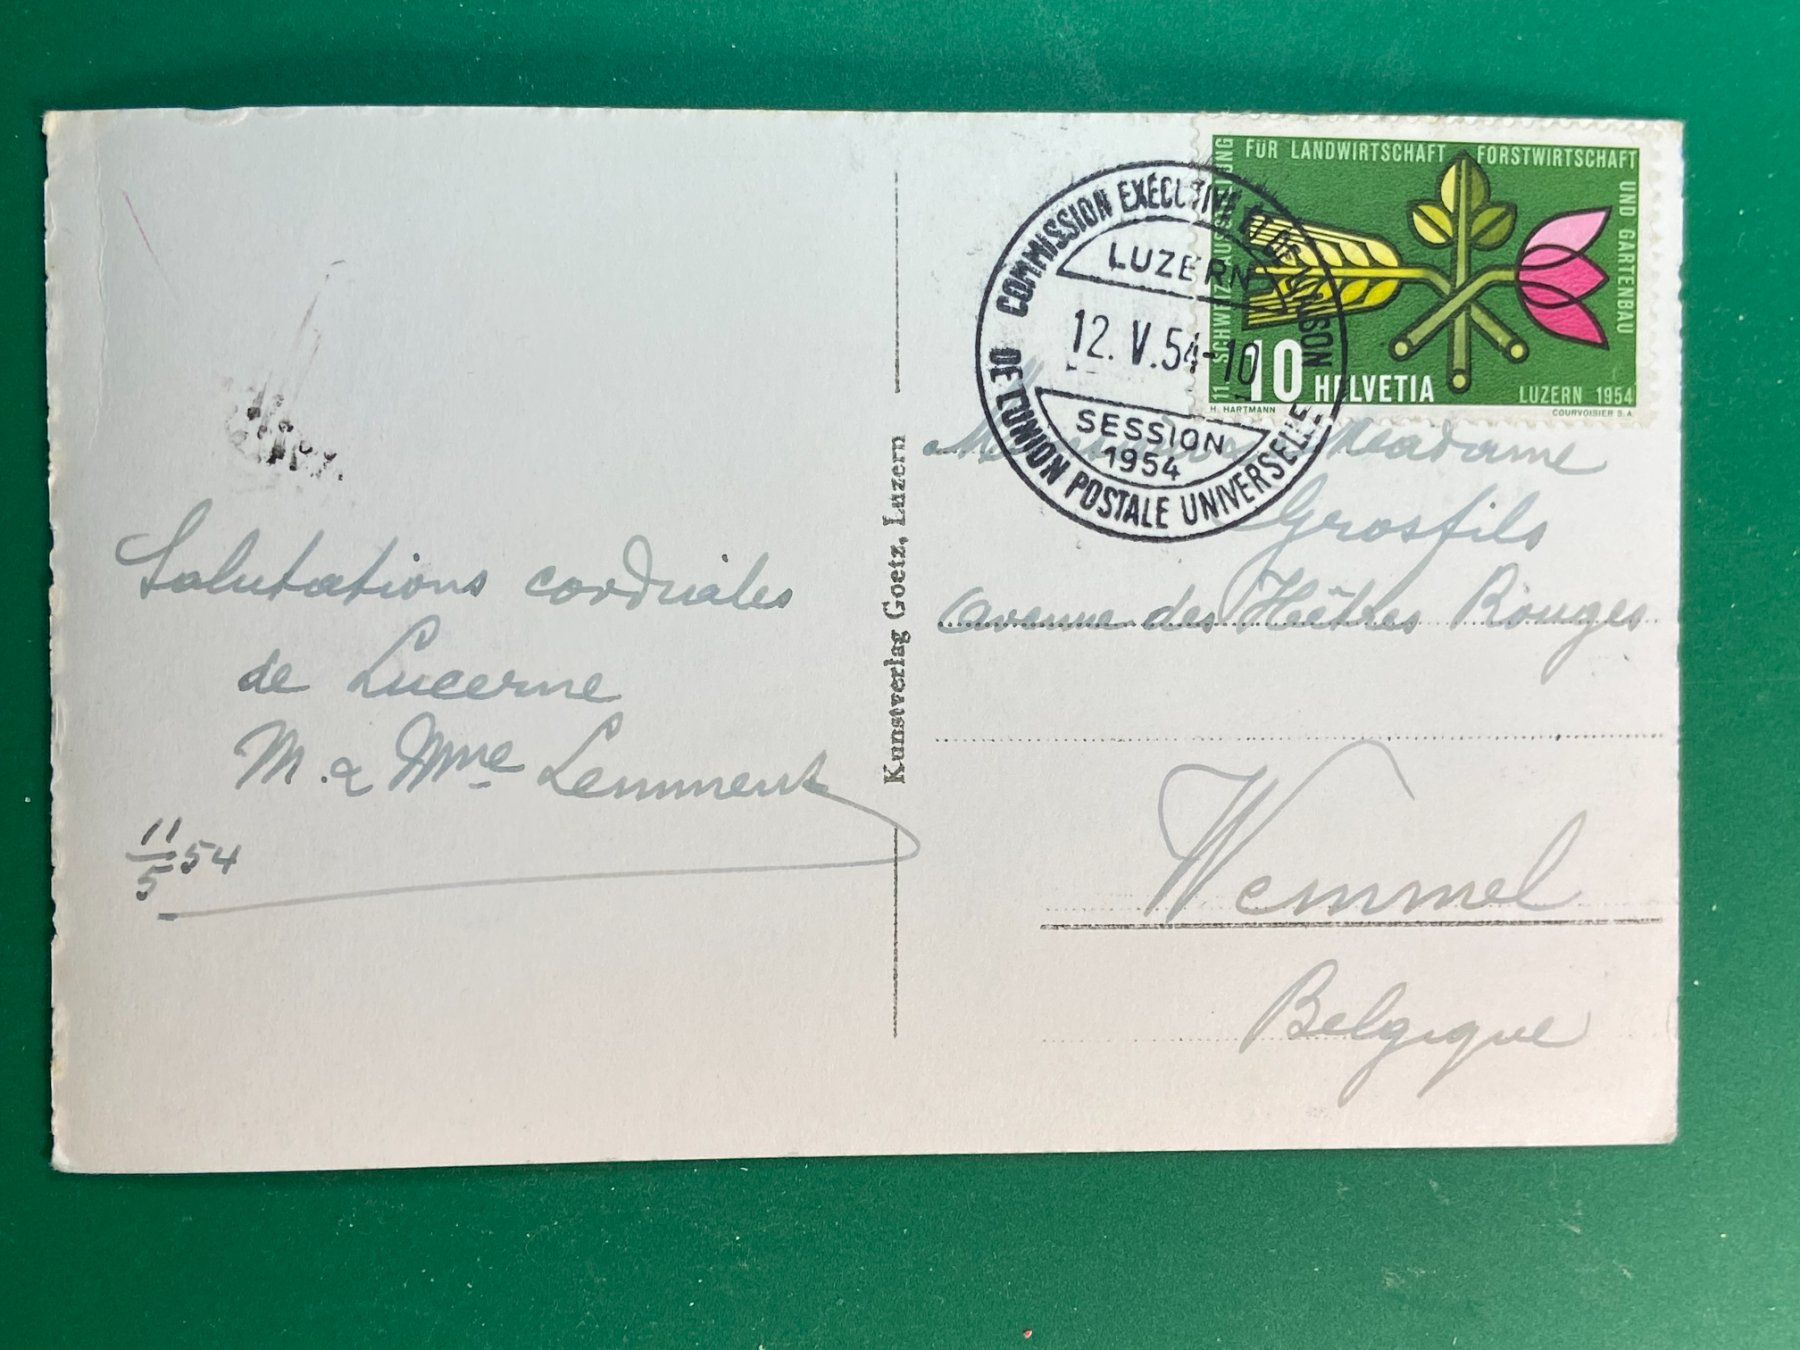 11. SCHWEIZ. AUSSTELLUNG
FÜR LANDWIRTSCHAFT FORSTWIRTSCHAFT
UND GARTENBAU
10 HELVETIA
LUZERN 1954
H. HARTMANN
COURVOISIER S.A.
COMMISSION EXÉCUTIVE ET DE LIAISON
DE L'UNION POSTALE UNIVERSELLE
LUZERN
12.V.54-10
SESSION
1954
Salutations cordiales
de Lucerne
M. & Mme
11/5 54
Kunstverlag Goetz, Luzern
Madame
Grosfils
avenue des Hêtres Rouges
Wemmel
Belgique